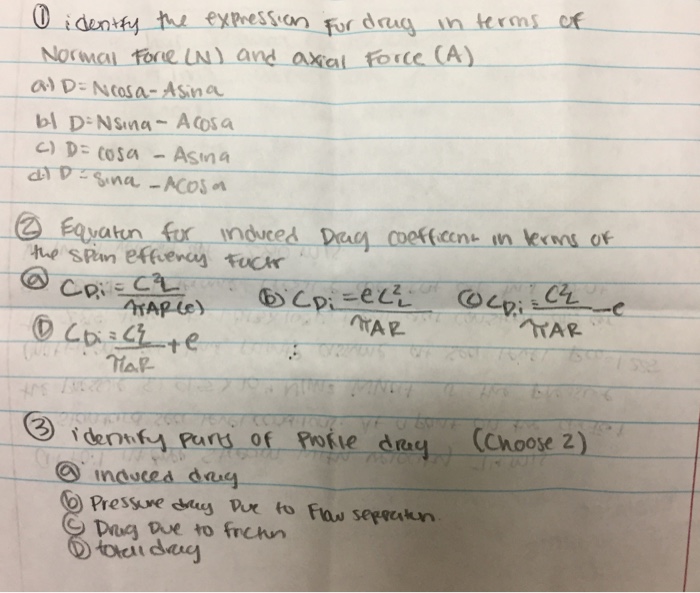 ① identify the expression For drag in terms of
Normal Force (N) and axial Force (A)
a.) D = Ncosa - Asina
b) D = Nsina - Acosa
c) D = cosa - Asina
d) D = sina - Acosa
② Equaton for induced Drag coefficent in terms of
the span effiency Factr
ⓐ CDi = C²L / πAR(e) ⓑ CDi = eC²L / πAR ⓒ CDi = C²L / πAR - e
Ⓓ CDi = C²L / πaR + e
③ identify parts of profile drag (Choose 2)
ⓐ induced drag
ⓑ Pressure drag Due to Flow seperation
Ⓒ Drag Due to frictun
Ⓓ total drag